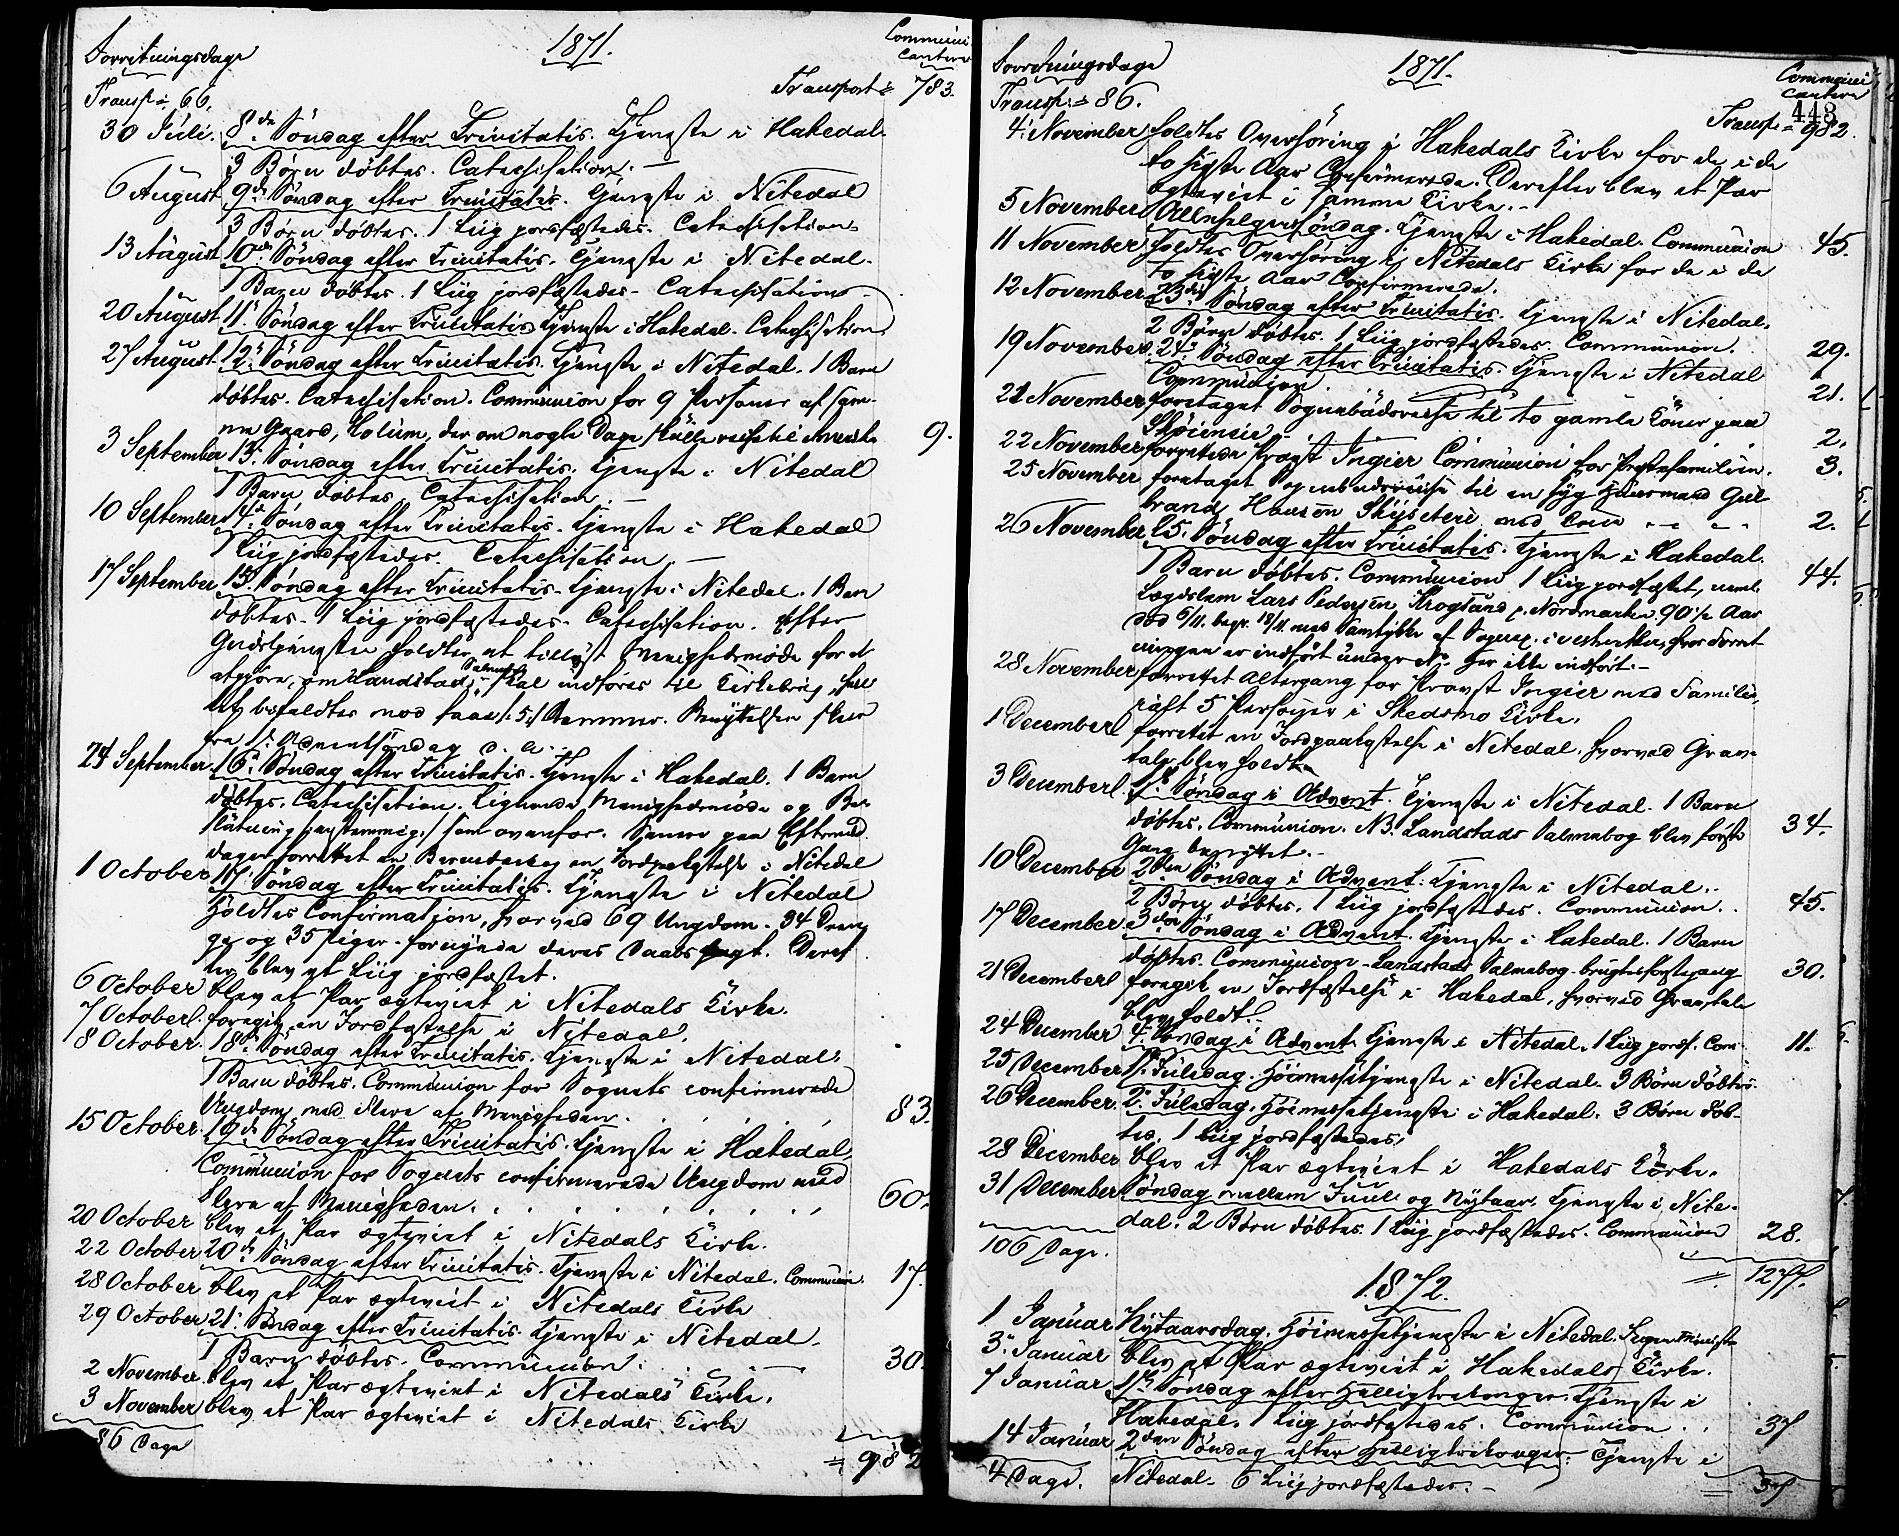 Forretningsdage
1871.
Communi-
cantere
Transp: 66.
Transport = 783.
30 Juli. 8de Söndag efter Trinitatis. Tjeneste i Hakedal.
3 Börn döbtes. Catechisation. —
6 August 9de Söndag efter Trinitatis. Tjeneste i Nitedal
3 Börn döbtes. 1 Liig jordfæstedes. Catechisation
13 August 10de Söndag efter Trinitatis. Tjeneste i Nitedal.
1 Barn döbtes. 1 Liig jordfæstedes - Catechisation
20 August 11te Söndag efter Trinitatis Tjeneste i Hakedal. Catechisation
27 August 12te Söndag efter Trinitatis. Tjeneste i Nitedal. 1 Barn
döbtes. Catechisation. Communion for 9 Personer af sam-
me Gaard, der om nogle Dage skulle reise til Amerika 9.
3 September 13. Söndag efter Trinitatis. Tjeneste i Nitedal
1 Barn döbtes. Catechisation. —
10 September 14de Söndag efter Trinitatis. Tjeneste i Hakedal
1 Liig jordfæstedes. Catechisation. —
17 September 15. Söndag efter Trinitatis. Tjeneste i Nitedal. 1 Barn
döbtes. 1 Liig jordfæstedes. Catechisation. Efter
Gudstjenesten holdtes et Menighedsmöde for at
afgjöre, om Landstads Psalmebog skal indföres til Kirkebrug,
mod faae /: 5 :/ Stemmer. Benyttelsen skeer
fra 1ste Adventsöndag d. A.
24 September 16. Söndag efter Trinitatis. Tjeneste i Hakedal. 1 Barn
döbtes. Catechisation. Lignende Menighedsmöde og Be-
slutning som ovenfor. Samme paa Eftermid-
dagen forrettet en Jordpaakastelse i Nitedal
1 October 17. Söndag efter Trinitatis. Tjeneste i Nitedal
Holdtes Confirmation, hvorved 69 Ungdom. 34 Dren-
ge og 35 Piger - fornyede deres Daabspagt. Deref-
ter blev et Liig jordfæstet.
6 October blev et Par ægteviet i Nitedals Kirke.
7 October foregik en Jordfæstelse i Nitedal.
8 October 18de Söndag efter Trinitatis. Tjeneste i Nitedal.
1 Barn döbtes. Communion for Sognets confirmerede
Ungdom med Flere af Menigheden. . . . . . 83.
15 October 19de Söndag efter Trinitatis. Tjeneste i Hakedal,
Communion for Sognets confirmerede Ungdom med
Flere af Menigheden. . . . . . . . 60.
20 October blev et Par ægteviet i Nitedals Kirke.
22 October 20de Söndag efter Trinitatis. Tjeneste i Nitedal. Communion. 17.
28 October blev et Par ægteviet i Nitedals Kirke
29 October 21. Söndag efter Trinitatis. Tjeneste i Nitedal.
1 Barn döbtes. Communion. . . — 30.
2 November blev et Par ægteviet i Nitedals Kirke.
3 November blev et Par ægteviet i Nitedals Kirke
86 Dage
= 982
Forretningsdage
1871.
Communi-
cantere
448
Transp: = 86.
Transp: = 982.
4. November holdtes Overhöring i Hakedals Kirke for de i de
to sidste Aar Confirmerede. Derefter blev et Par
ægteviet i samme Kirke. -
5 November Allehelgensöndag. Tjeneste i Hakedal. Communion 45.
11 November holdtes Overhöring i Nitedals Kirke for de i de
to sidste Aar Confirmerede.
12 November 23de Söndag efter Trinitatis. Tjeneste i Nitedal.
2 Börn döbtes. 1 Liig jordfæstedes. Communion. 29.
19 November 24. Söndag efter Trinitatis. Tjeneste i Nitedal
Communion. 21.
21 November foretaget Sognebudsreise til to gamle Koner paa
2.
22 November forrettede Provst Ingier Communion for Præstefamilien. 3.
25 November foretaget Sognebudsreise til en syg Huusmand Gul-
brand Hansen med Kone — — 2.
26 November 25. Söndag efter Trinitatis. Tjeneste i Hakedal.
1 Barn döbtes. Communion 1 Liig jordfæstet, neml. 44.
Lægdslem Lars Pedersen Krogsund i Nordmarken 90 1/2 Aar
död 6/11. begr. 18/11. med Samtykke af Sognepr. i hvor Forret-
ningen er indfört under No. Her ikke indfört. -
28 November forrettet Altergang for Provst Ingier med Familie,
5 Personer i Skedsmo Kirke.
1 December forrettet en Jordpaakastelse i Nitedal, hvorved Grav-
tale blev holdt.
3 December 1ste Söndag i Advent. Tjeneste i Nitedal. 1 Barn
döbtes. Communion. NB. Landstads Salmebog blev förste 34.
Gang benyttet. -
10 December 2den Söndag i Advent. Tjeneste i Nitedal.
2 Börn döbtes. 1 Liig jordfæstedes. Communion. . 45.
17 December 3die Söndag i Advent. Tjeneste i Hakedal. 1 Barn
döbtes. Communion - Landstads Salmebog brugtes förstegang 30.
21 December foregik en Jordfæstelse i Hakedal, hvorved Gravtale
blev holdt.
24 December 4. Söndag i Advent. Tjeneste i Nitedal. 1 Liig jordf. Com. 11.
25 December 1ste Juledag. Höimessetjeneste i Nitedal. 3 Börn döbtes.
26 December. 2. Juledag. Höimessetjeneste i Hakedal. 3 Börn döb-
tes. 1 Liig jordfæstedes.
28 December blev et Par ægteviet i Hakedals Kirke.
31 December Söndag mellem Juul og Nytaar. Tjeneste i Nite-
dal. 2 Börn döbtes. 1 Liig jordfæstedes. Communion 28.
106 Dage.
= 1277.
1872.
1 Januar Nytaarsdag. Höimessetjeneste i Nitedal.
3. Januar blev et Par ægteviet i Hakedals Kirke.
7 Januar 1ste Söndag efter Helligtrekonger. Tjeneste i
Hakedal. 1 Liig jordfæstedes. Communion . . 37
14 Januar 2den Söndag efter Helligtrekonger. Tjeneste i
Nitedal. 6 Liig jordfæstedes. -
4 Dage.
= 37